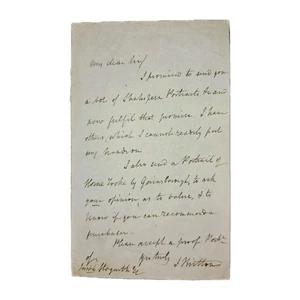 My dear Sir,
I promised to send you
a set of Shakspere Portraits & and
now fulfil that promise I have
others, which I cannot readily put
my hands on.
I also send a Portrait of
Horne Tooke by Gainsborough, to ask
your opinion, as to value, & to
know if you can recommend a
purchaser.
Please accept a proof Portr.
of yrs truly J. Britton
Joseph Hogarth Esq